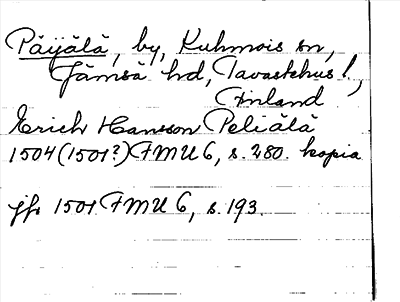 Päijälä, by, Kuhmois sn,
Jämsä hd, Tavastehus l.,
Finland
Erich Hansson Peliälä
1504 (1501?) FMU 6, s. 280. kopia
jfr 1501 FMU 6, s. 193.